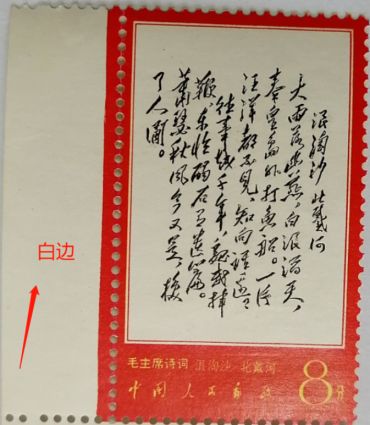 浪淘沙 北戴河
大雨落幽燕,白浪滔天,
秦皇島外打魚船。一片
汪洋都不見,知向誰邊
往事越千年,魏武揮
鞭,東臨碣石有遺篇。
蕭瑟秋風今又是,換
了人間。
白边
毛主席诗词 浪淘沙·北戴河
中國人民郵政
8分